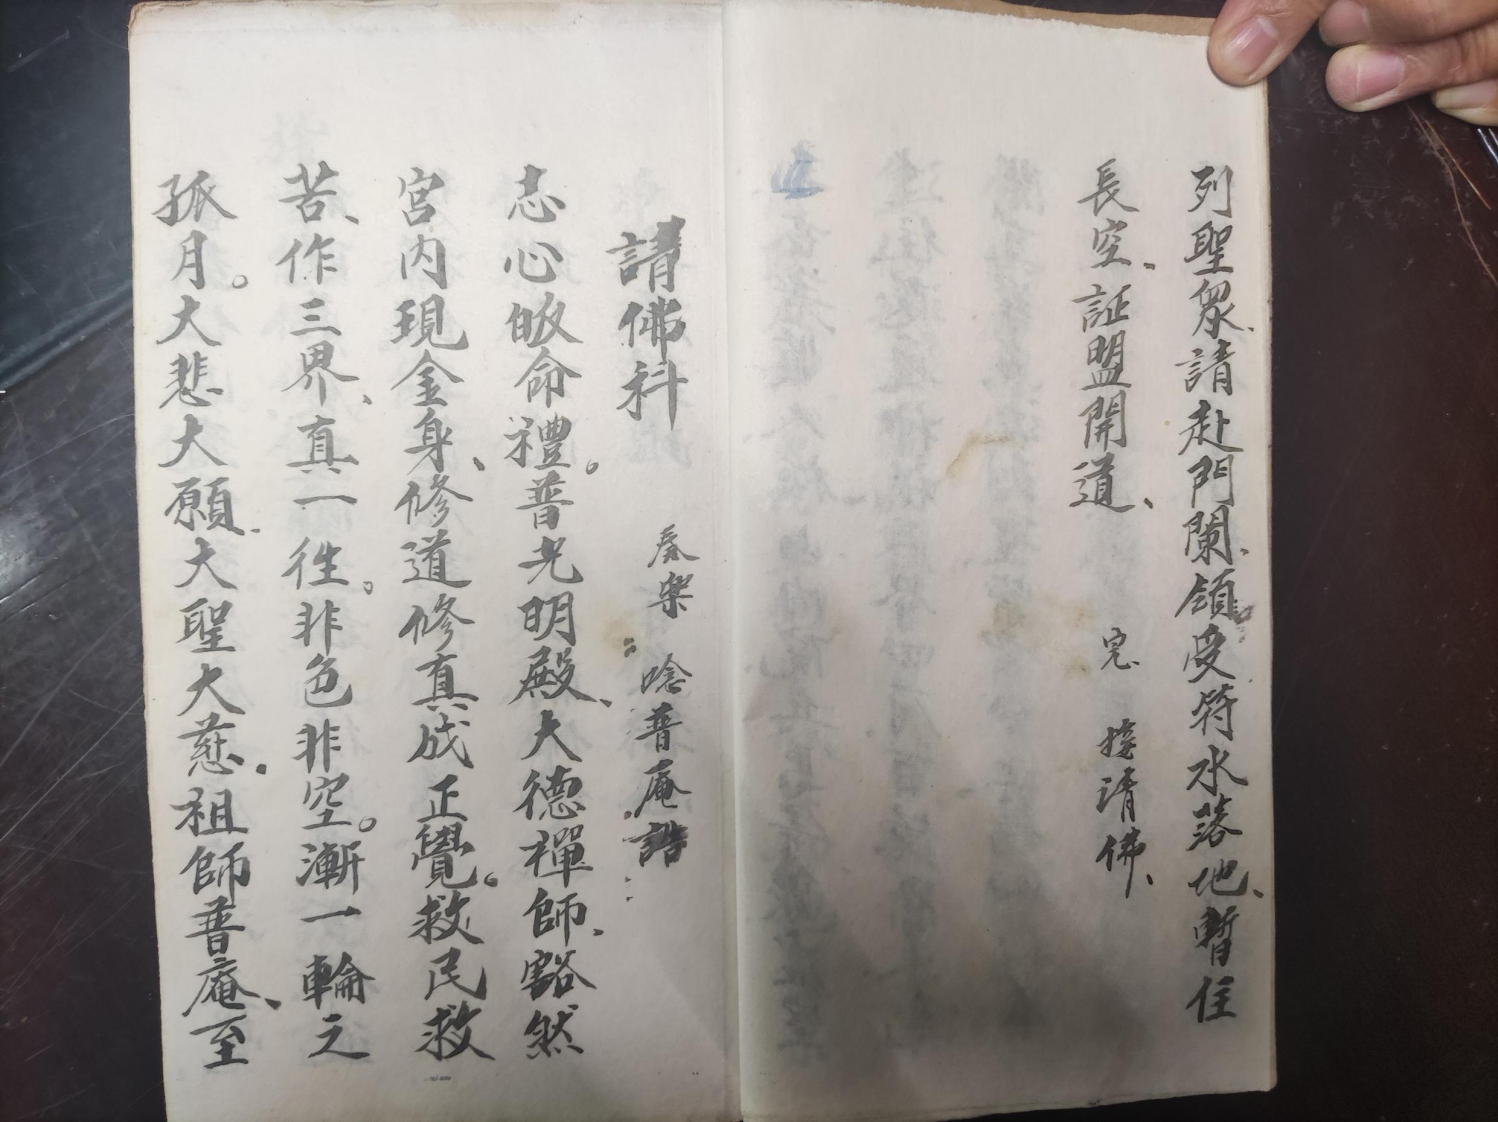 列聖衆、請赴門闌、領受符水落地、暫住
長空、証盟開道、 完 接請佛、
請佛科 奏樂 唸普庵誥
志心皈命禮。普光明殿、大德禪師、豁然
宮内現金身、修道修真成正覺。救民救
苦、作三界、真一徃。非色非空。漸一輪之
孤月。大悲大願、大聖大慈、祖師普庵、至